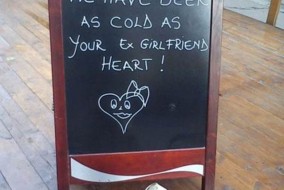 WE HAVE BEER
AS COLD AS
YOUR EX GIRLFRIEND
HEART !